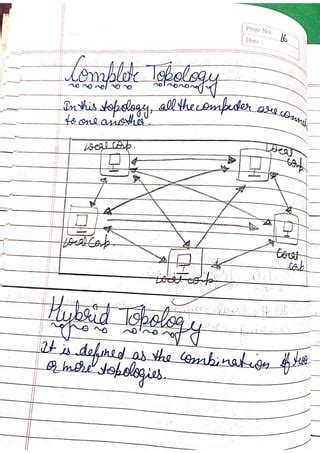 Page No. 16
Date
Complete Topology
In this topology, all the computer are conn
to one another.
Local Corp.
Local
Corp.
Local Corp.
Local
Corp.
Local Corp.
Hybrid Topology
It is defined as the combination of two
or more topologies.